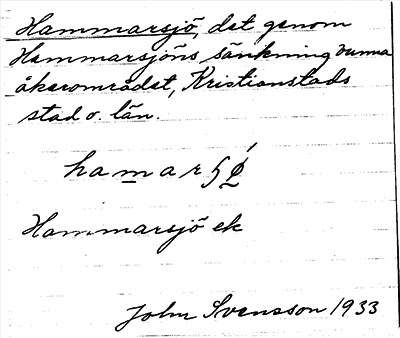 Hammarsjö, det genom
Hammarsjöns sänkning vunna
åkerområdet, Kristianstads
stad o. län.
hamarʂǿ
Hammarsjö ek
John Svensson 1933